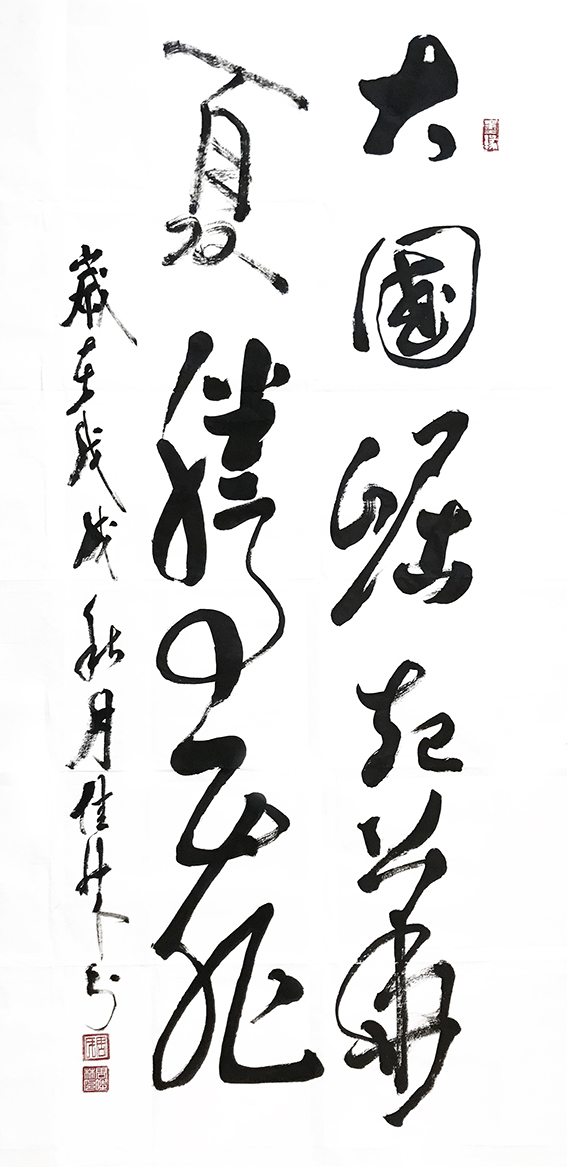 大國崛起華
夏騰飛
歲在戊戌秋月佳林书